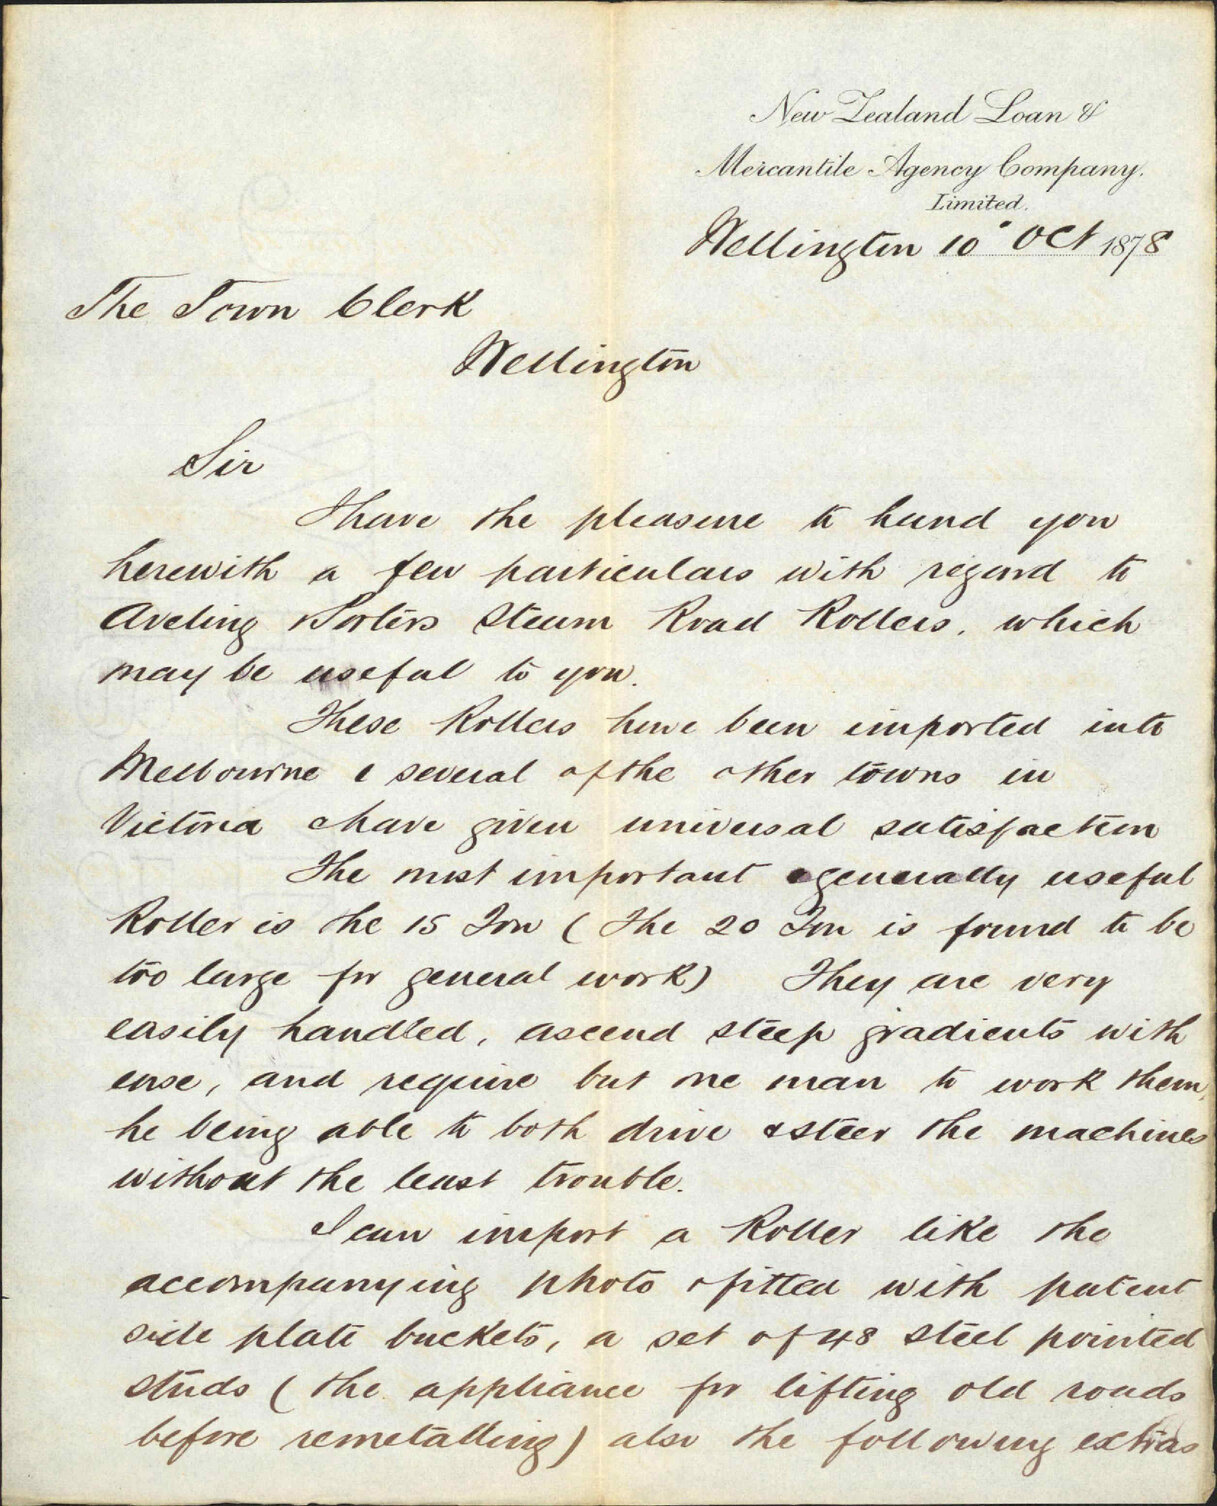 New Zealand Loan &
Mercantile Agency Company.
Limited.
Wellington 10" Oct 1878
The Town Clerk
Wellington
Sir
I have the pleasure to hand you
herewith a few particulars with regard to
Aveling & Porters Steam Road Rollers, which
may be useful to you.
These Rollers have been imported into
Melbourne & several of the other towns in
Victoria & have given universal satisfaction
The most important & generally useful
Roller is the 15 Ton (The 20 Ton is found to be
too large for general work) They are very
easily handled, ascend steep gradients with
ease, and require but one man to work them,
he being able to both drive & steer the machines
without the least trouble.
I can import a Roller like the
accompanying photo & fitted with patent
side plate buckets, a set of 48 steel pointed
studs (the appliance for lifting old roads
before remetalling) also the following extras